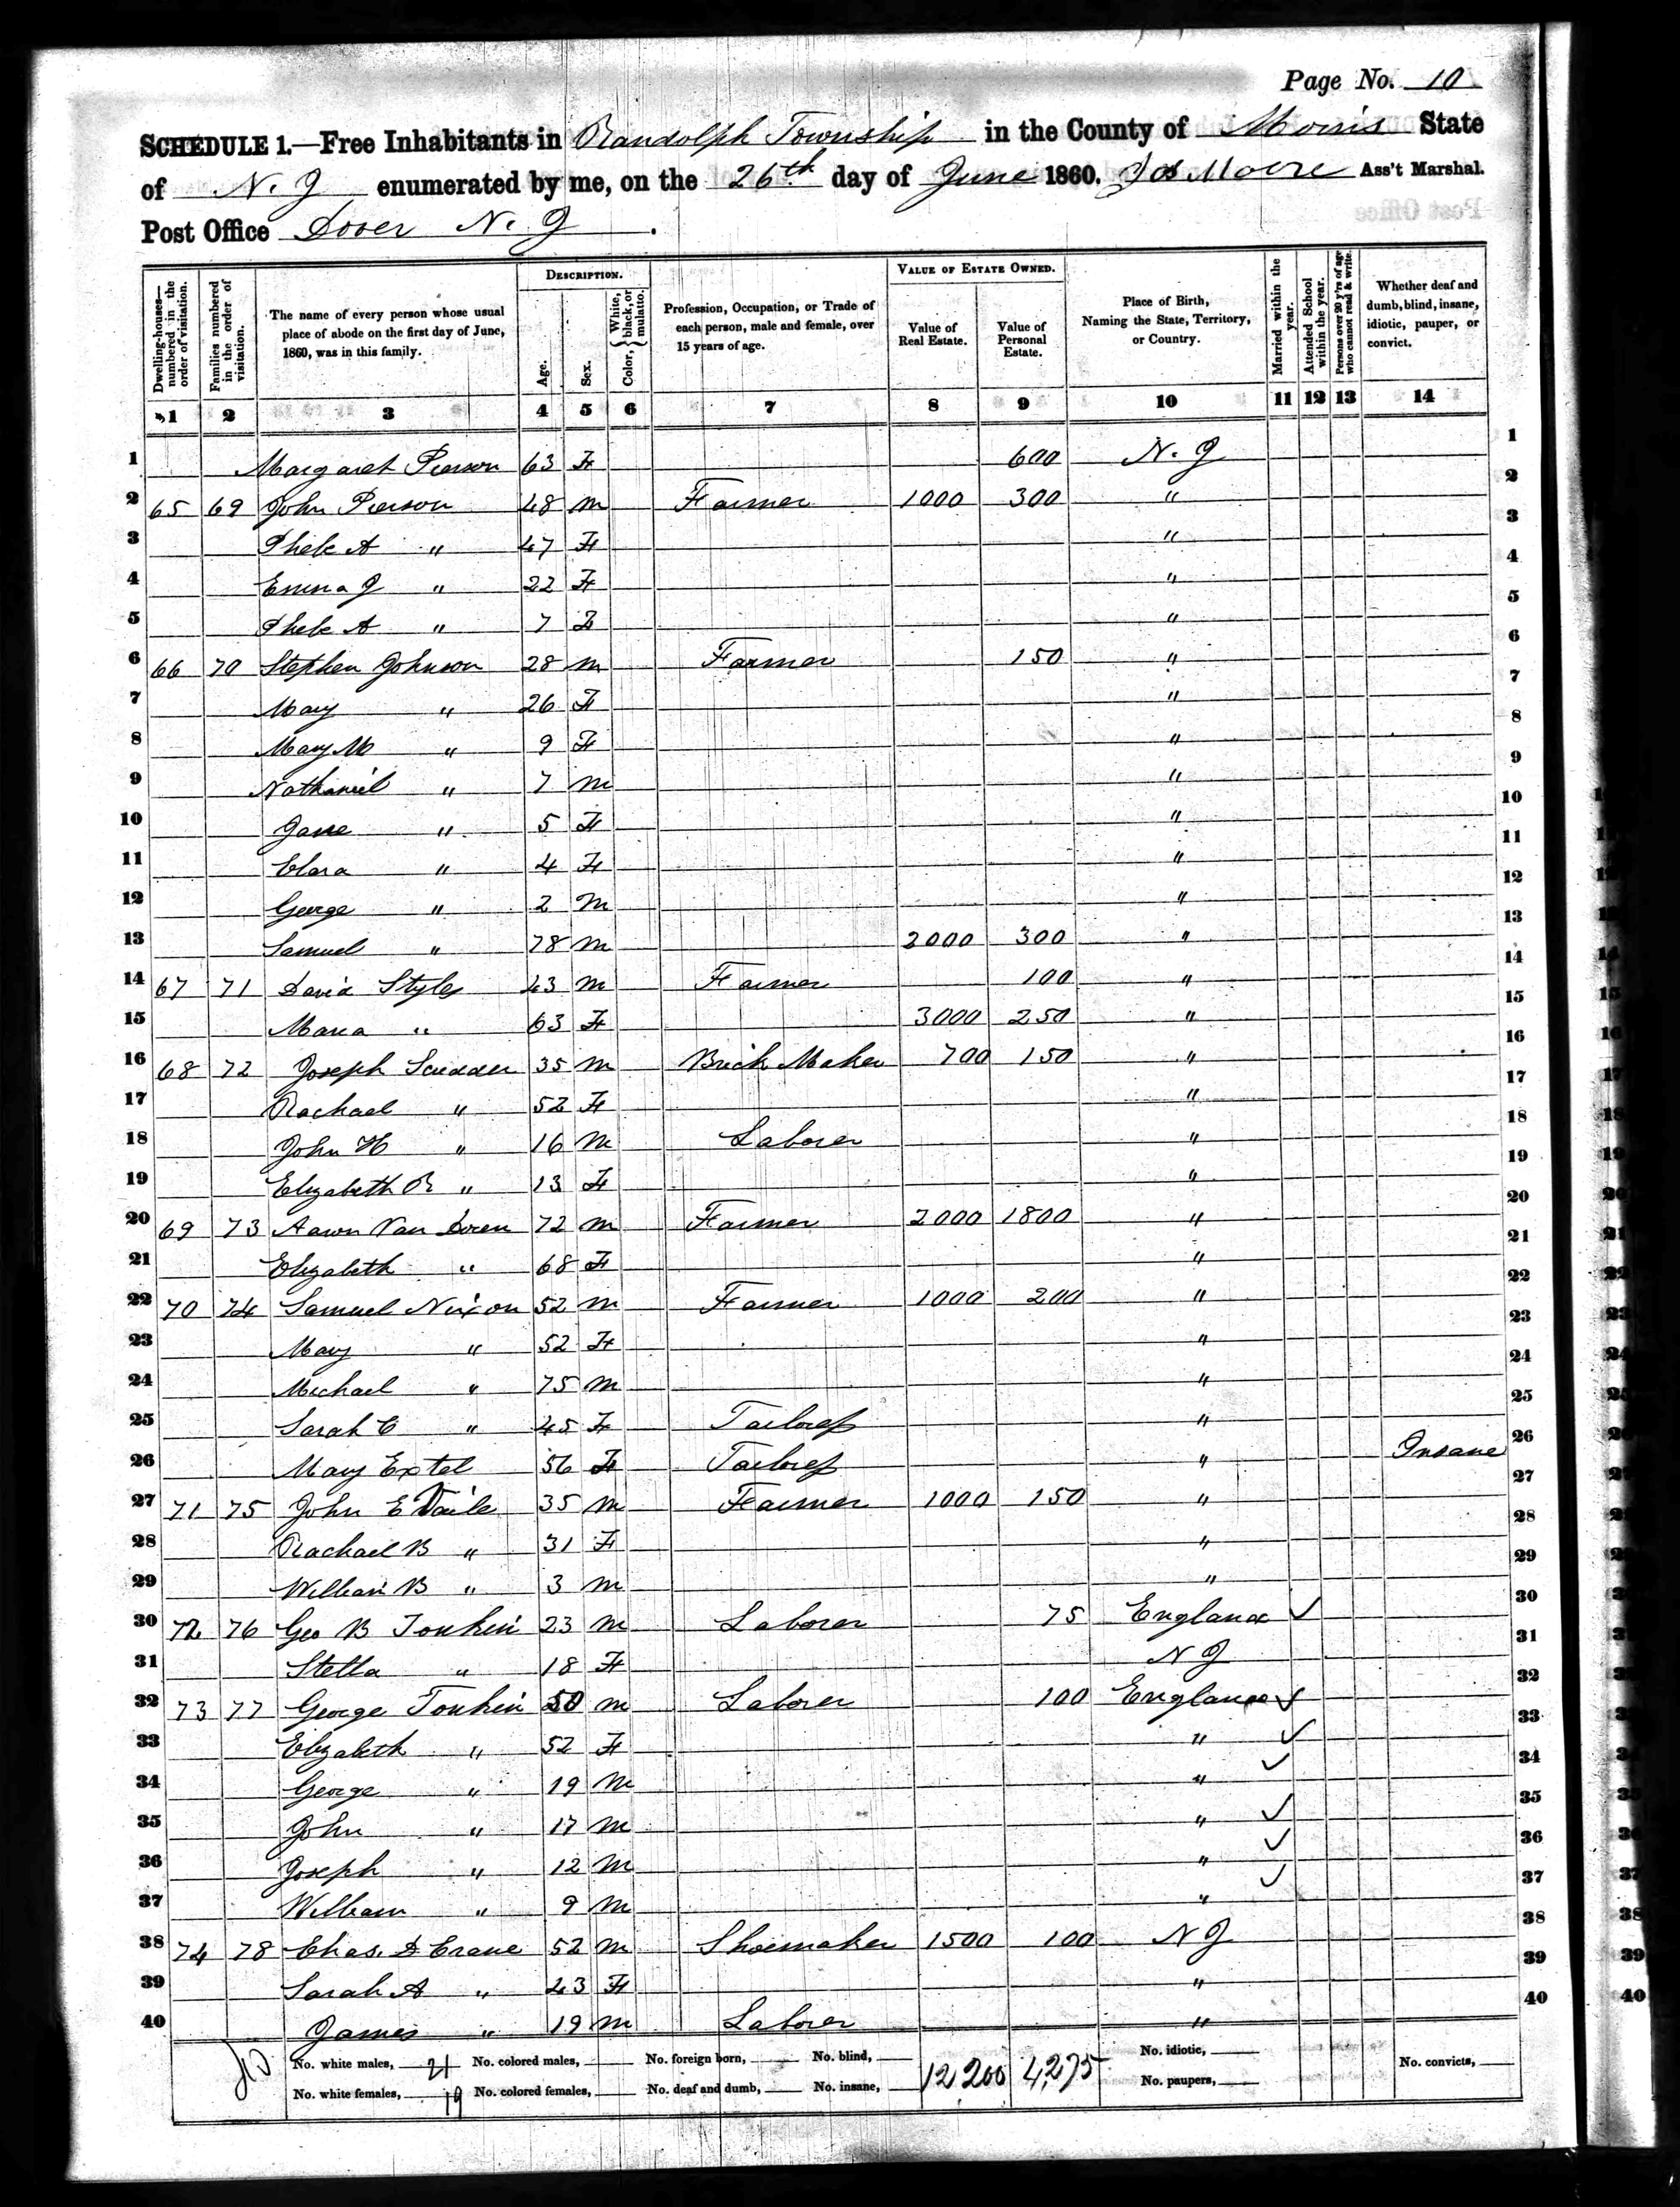 Page No. 10
SCHEDULE 1.—Free Inhabitants in Randolph Township in the County of Morris State
of N. J enumerated by me, on the 26th day of June 1860. Jas Moore Ass't Marshal.
Post Office Dover N. J.
Dwelling-houses—numbered in the order of visitation.
Families numbered in the order of visitation.
The name of every person whose usual place of abode on the first day of June, 1860, was in this family.
DESCRIPTION.
Age.
Sex.
Color, { White, black, or mulatto.
Profession, Occupation, or Trade of each person, male and female, over 15 years of age.
VALUE OF ESTATE OWNED.
Value of Real Estate.
Value of Personal Estate.
Place of Birth, Naming the State, Territory, or Country.
Married within the year.
Attended School within the year.
Persons over 20 y'rs of age who cannot read & write.
Whether deaf and dumb, blind, insane, idiotic, pauper, or convict.
1 2 3 4 5 6 7 8 9 10 11 12 13 14
1 Margaret Pierson 63 F 600 N. J 1
2 65 69 John Pierson 48 m Farmer 1000 300 " 2
3 Phebe A " 47 F " 3
4 Emma J " 22 F " 4
5 Phebe A " 7 F " 5
6 66 70 Stephen Johnson 28 m Farmer 150 " 6
7 Mary " 26 F " 7
8 Mary M " 9 F " 8
9 Nathaniel " 7 m " 9
10 Jane " 5 F " 10
11 Clara " 4 F " 11
12 George " 2 m " 12
13 Samuel " 78 m 2000 300 " 13
14 67 71 David Styles 43 m Farmer 100 " 14
15 Maria " 63 F 3000 250 " 15
16 68 72 Joseph Scudder 35 m Brick Maker 700 150 " 16
17 Rachael " 52 F " 17
18 John H " 16 m Laborer " 18
19 Elizabeth R " 13 F " 19
20 69 73 Aaron Van Doren 72 m Farmer 2000 1800 " 20
21 Elizabeth " 68 F " 21
22 70 74 Samuel Nixon 52 m Farmer 1000 200 " 22
23 Mary " 52 F " 23
24 Michael " 75 m " 24
25 Sarah C " 45 F Tailoress " 25
26 Mary Extel 56 F Tailoress " Insane 26
27 71 75 John E Vaile 35 m Farmer 1000 150 " 27
28 Rachael B " 31 F " 28
29 William B " 3 m " 29
30 72 76 Geo B Tonkin 23 m Laborer 75 England ✓ 30
31 Stella " 18 F N J 31
32 73 77 George Tonkin 50 m Laborer 100 England ✓ 32
33 Elizabeth " 52 F " ✓ 33
34 George " 19 m " ✓ 34
35 John " 17 m " ✓ 35
36 Joseph " 12 m " ✓ 36
37 William " 9 m " ✓ 37
38 74 78 Chas. D Crane 52 m Shoemaker 1500 100 N J 38
39 Sarah A " 43 F " 39
40 James " 19 m Laborer " 40
No. white males, 21 No. colored males, No. foreign born, No. blind, 12200 4,275 No. idiotic, No. convicts,
No. white females, 19 No. colored females, No. deaf and dumb, No. insane, No. paupers,